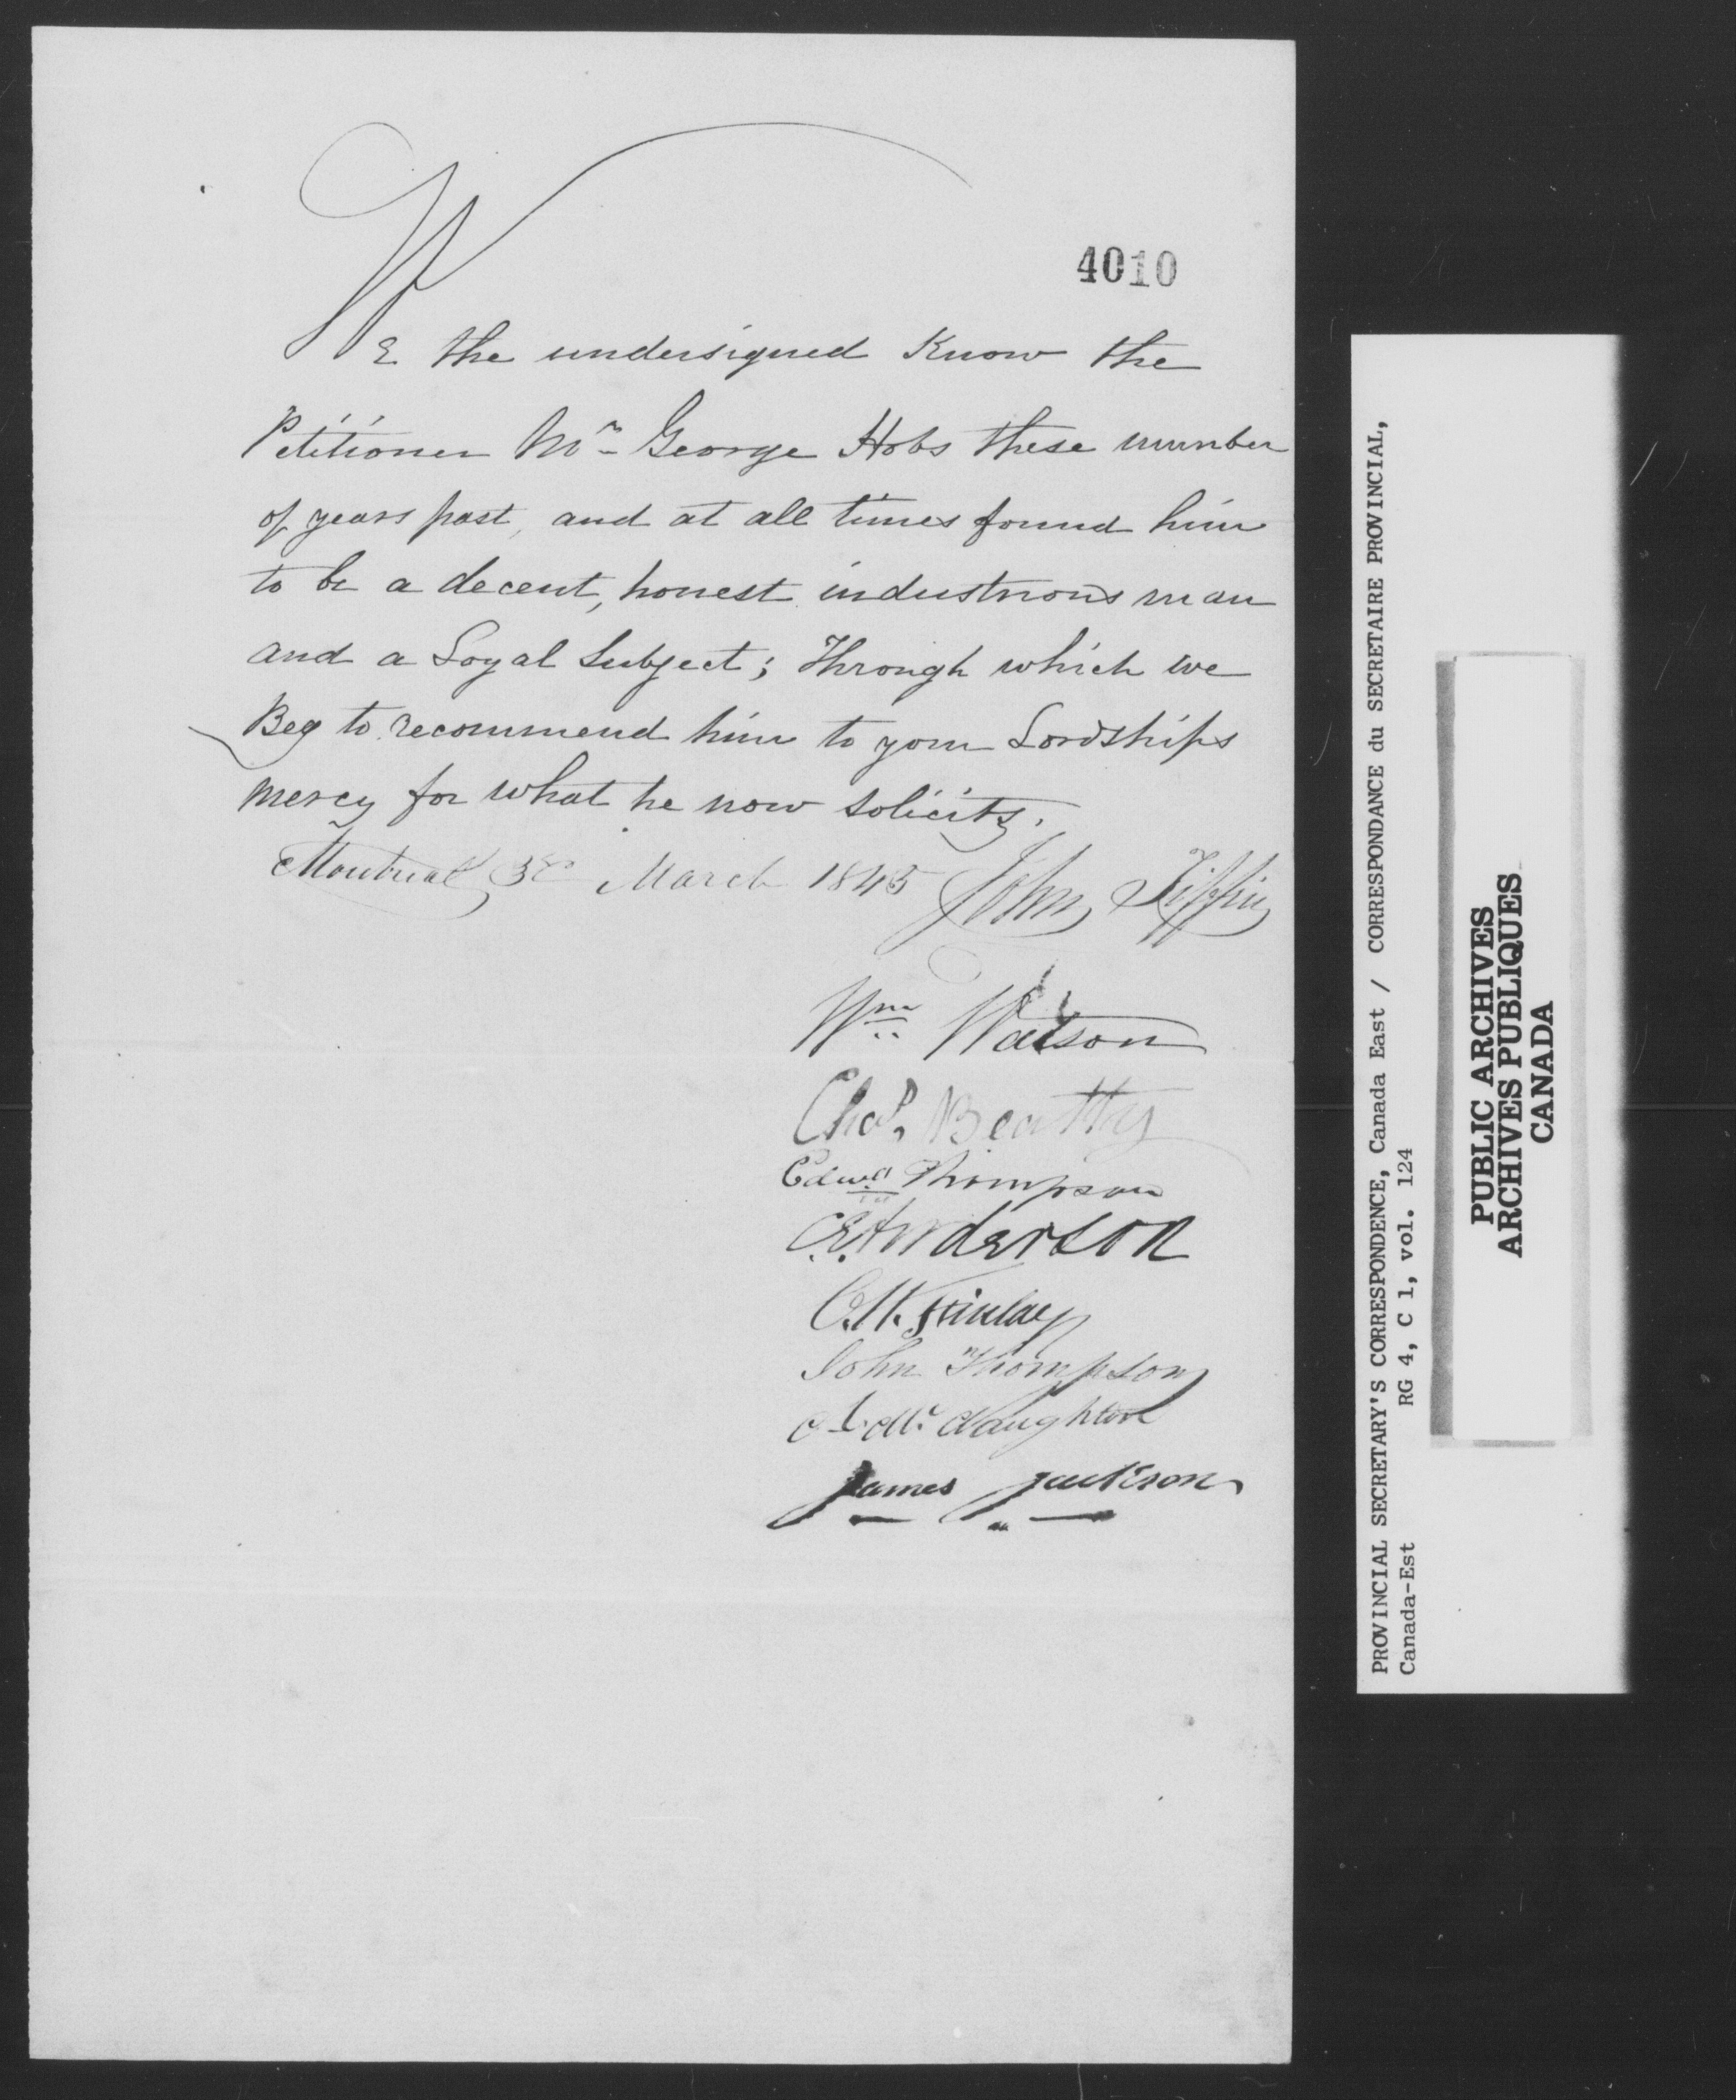 4010
WE the undersigned Know the
Petitioner Mr George Hobs these number
of years past, and at all times found him
to be a decent, honest industrious man
and a Loyal Subject; Through which we
Beg to recommend him to your Lordships
mercy for what he now solicits.
Montreal 3d March 1845 John Tiffin
Wm Watson
Chas. Beatty
Edwd Thompson
Anderson
Finlay
John Thompson
McNaughton
James Jackson
PROVINCIAL SECRETARY'S CORRESPONDENCE, Canada East / CORRESPONDANCE du SECRETAIRE PROVINCIAL,
Canada-Est RG 4, C 1, vol. 124
PUBLIC ARCHIVES
ARCHIVES PUBLIQUES
CANADA